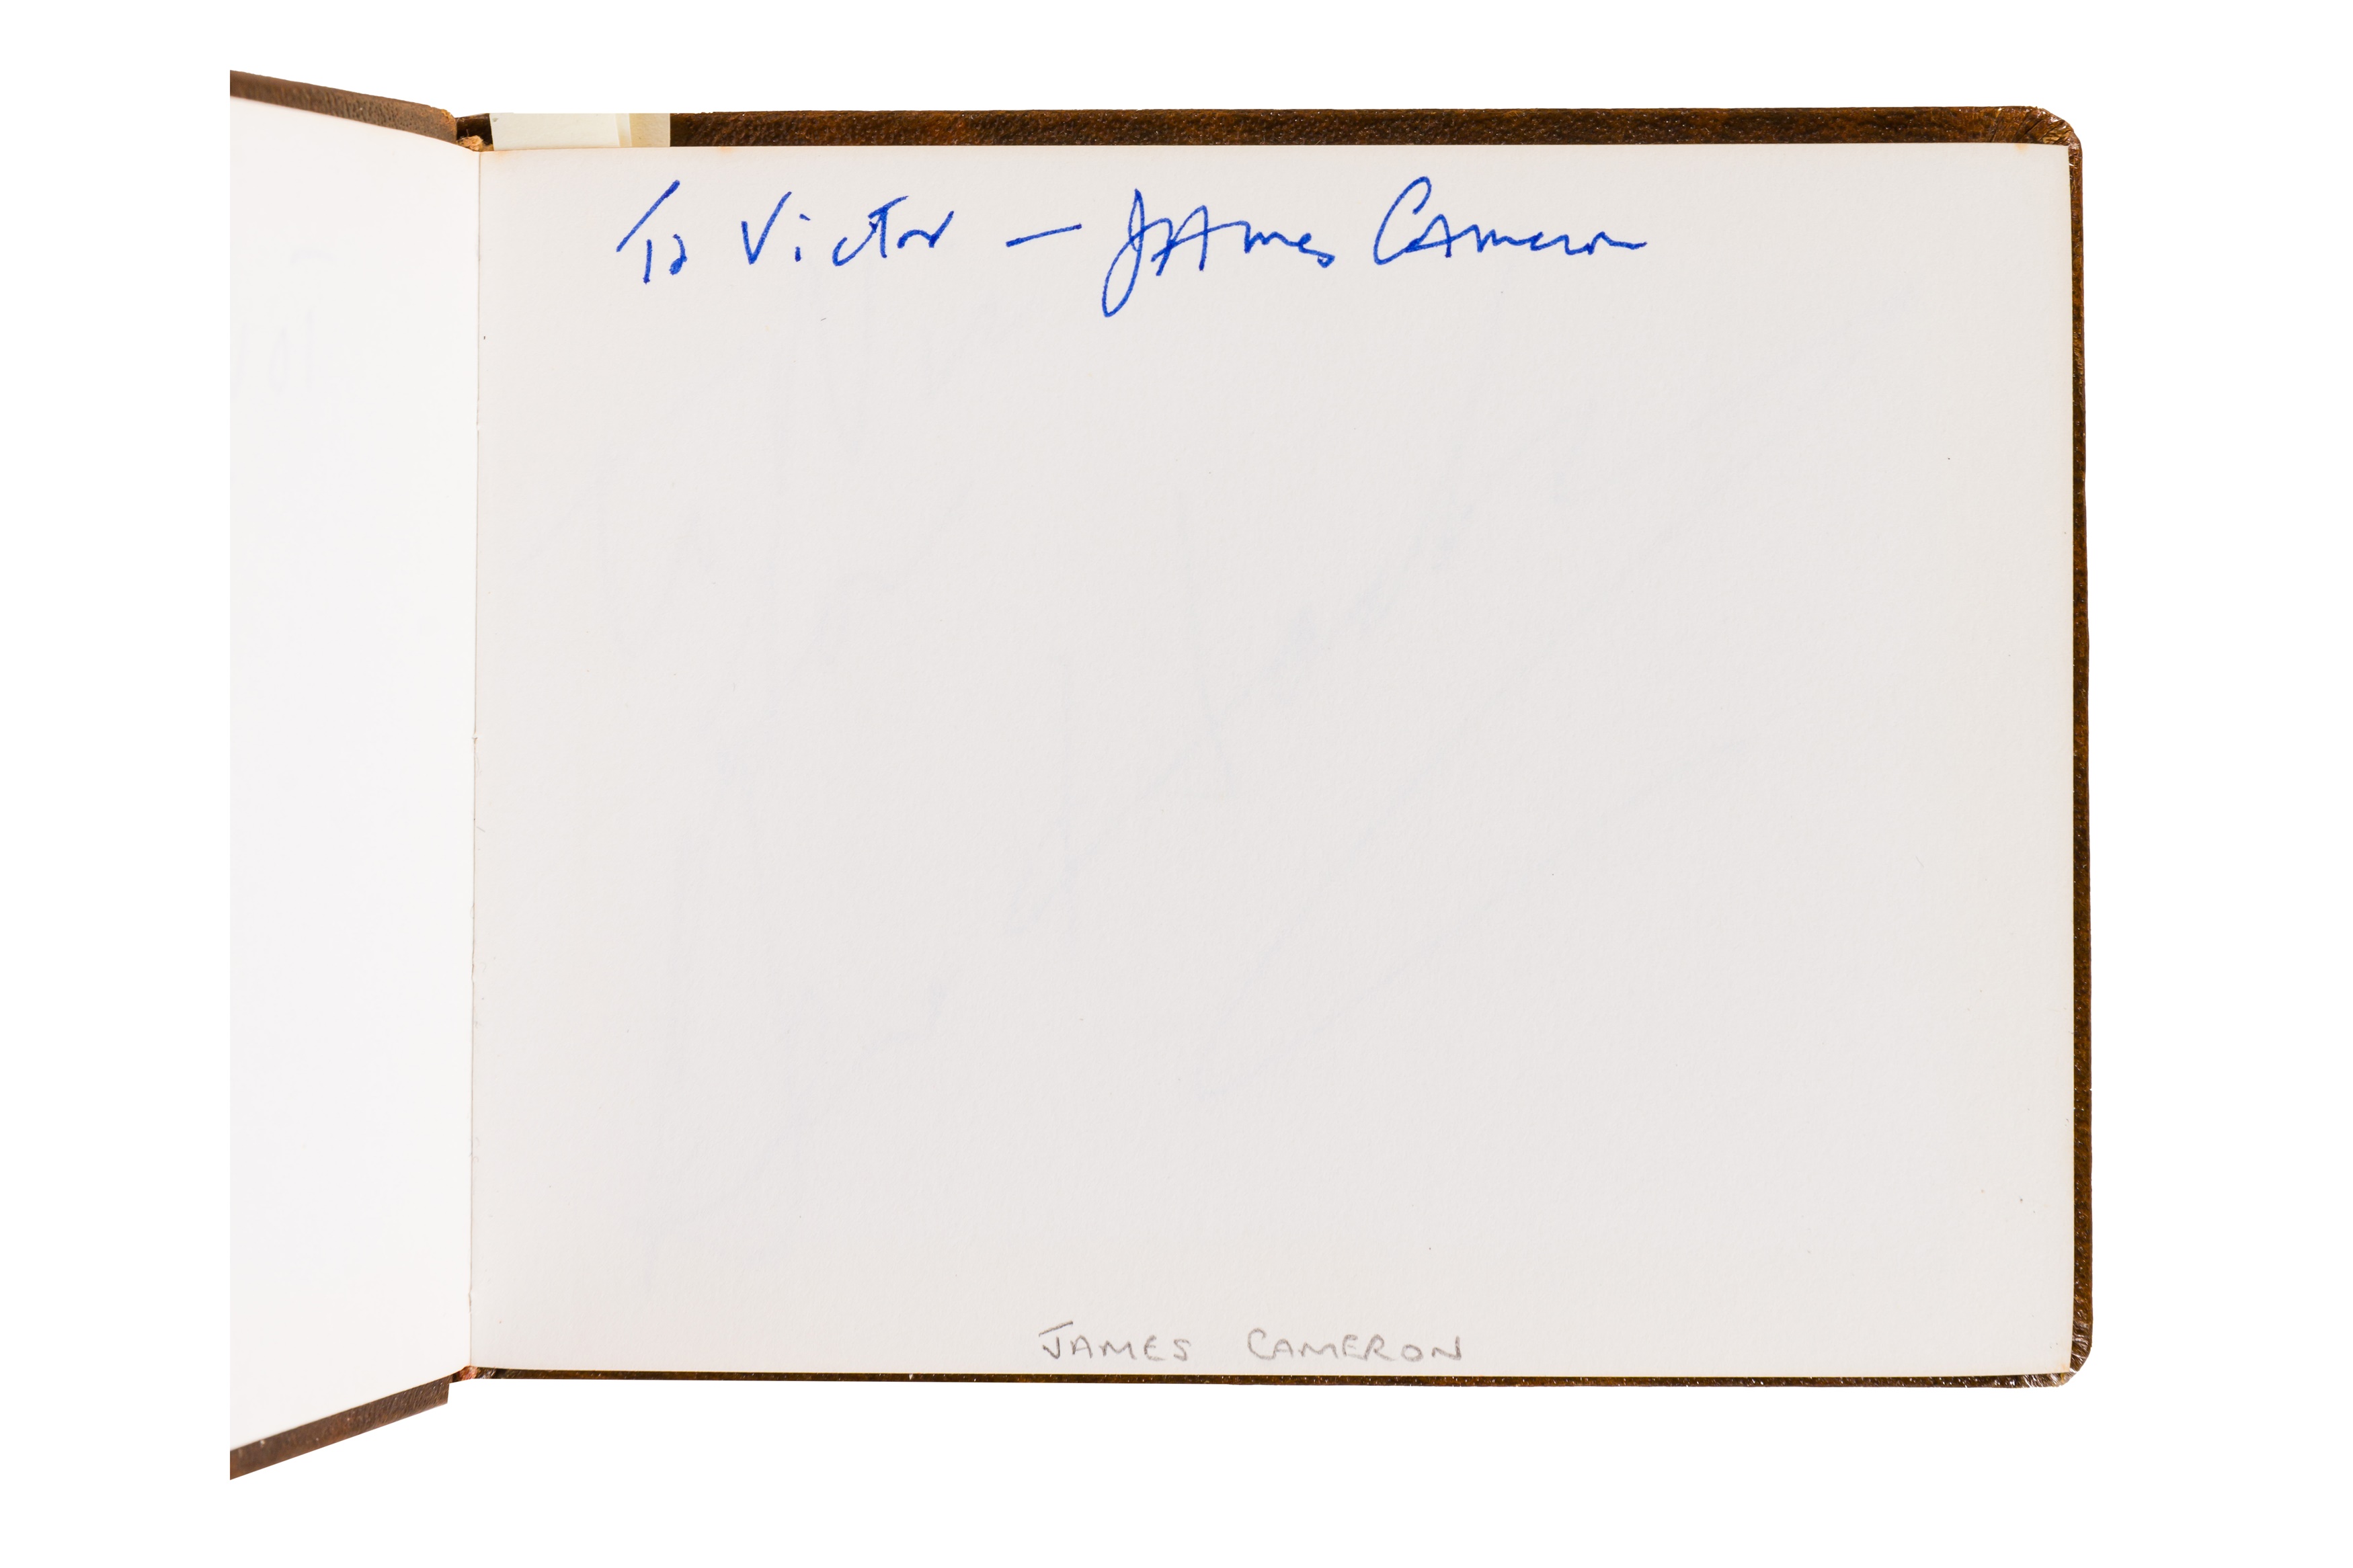 To Victor — James Cameron
JAMES CAMERON